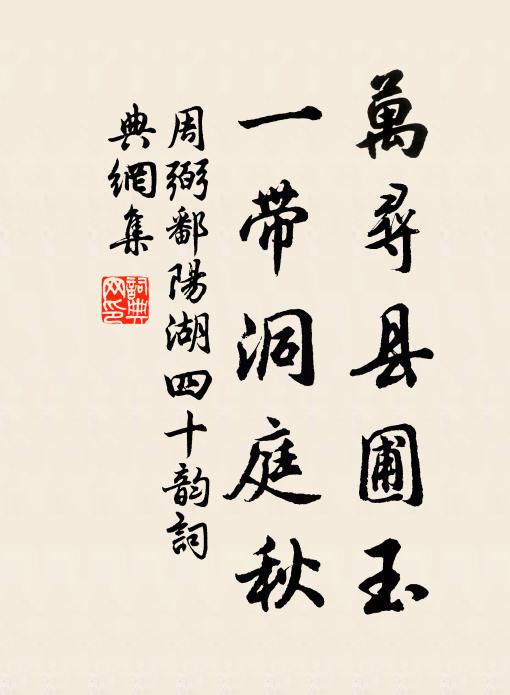 萬尋县圃玉
一帶洞庭秋
周弼鄱陽湖四十韵詞
典網集
詞典
网印